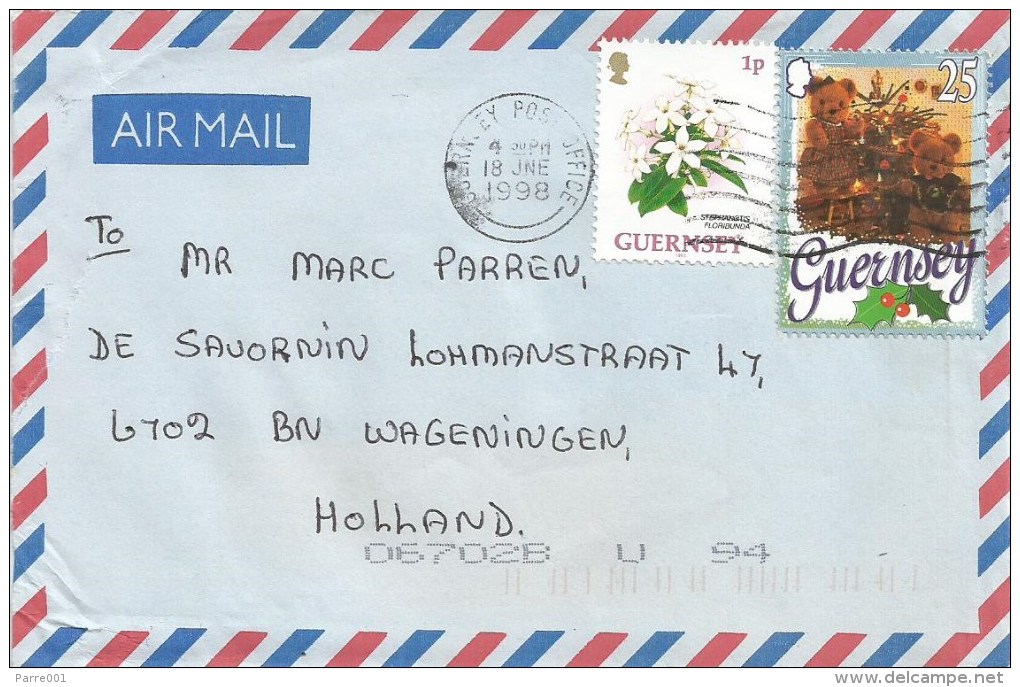 AIR MAIL
GUERNSEY POST OFFICE
4 30PM
18 JNE
1998
1p
STEPHANOTIS
FLORIBUNDA
GUERNSEY
25
Guernsey
To
MR MARC PARREN,
DE SAVORNIN LOHMANSTRAAT 47,
6702 BN WAGENINGEN,
HOLLAND.
067028 U 94
Parre001
delcampe.net